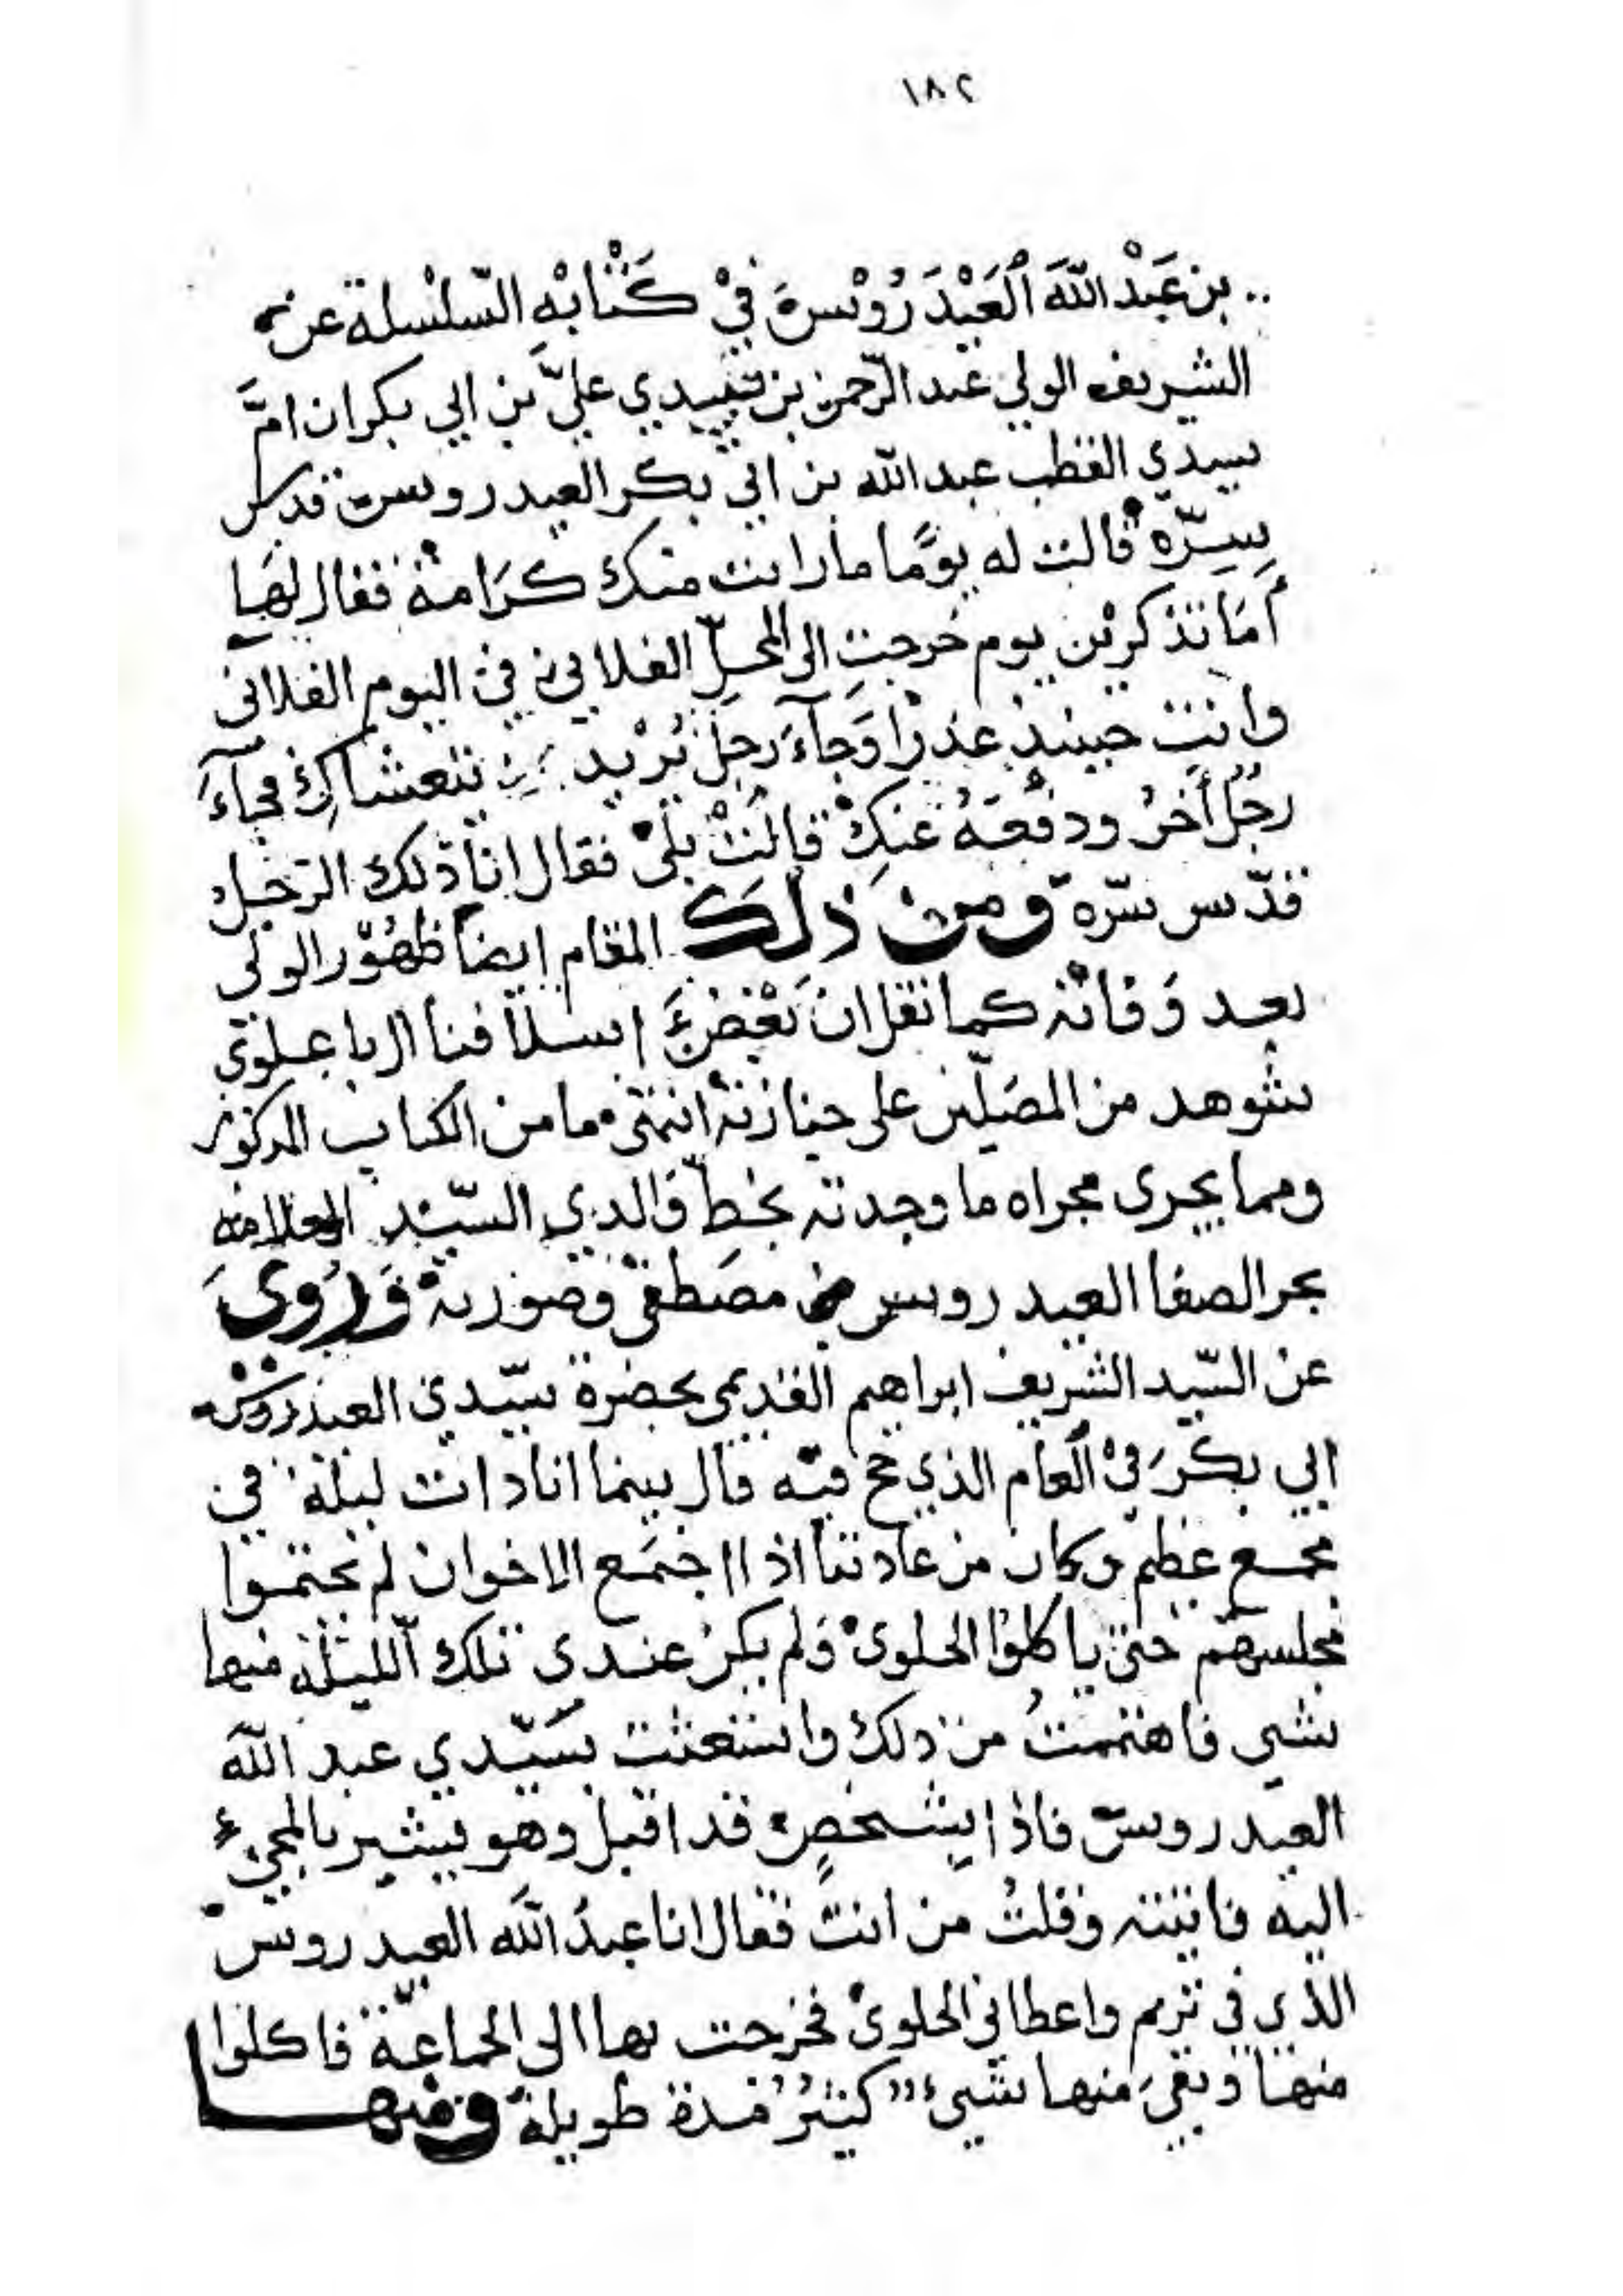 ١٨٢
.. بن عَبْد اللّٰه الْعَيْدَرُوْس فِيْ كِتَابْهِ السّلسْلة عن
الشريف الولي عبد الرّحمن بن سيدي عليّ بن ابي بكر ان امَّ
سيدي القطب عبد اللّٰه بن ابي بكر العيدروس قدس
سِرّه قالت له يومًا ما رايت منك كَرَامة فقال لها
أَمَا تذكرين يوم خرجتِ الى المحلّ الفلاني في اليوم الفلانى
وانتِ حينئذ عذرا وَجآءَ رجل يُريد يتعشاكِ فجآءَ
رجُل أخرُ ودفعَهُ عَنكِ قالَتْ بلى فقال انا ذلك الرّجل
قدّس سرّه ومن ذلك المقام ايضاً ظهُوْر الولي
بعد وَفاته كما نقل ان بَعْض اسلافنا ال باعلوي
شوهد من المصَلّين على جنازته انتهى ما من الكتاب المذكور
ومما يجرى مجراه ما وجدته بخطّ والدي السّيّد العلامه
بحر الصفا العيدروس بن مصطفى وصورته وَرُوي
عن السّيد الشريف ابراهيم القديمي بحضرة سيّدي العيدروس
ابي بكر في العام الذي حج فيه قال بينما انا ذات ليلة في
مجمع عظيم وكان من عادتنا اذا اجتمَع الاخوان لم يختموا
مجلسهم حتى ياكلوا الحلوى وَلم يكن عندى تلك الليلة منها
شي فاهتممتُ من ذلك واستغثت بسَيّدي عبد اللّٰه
العيدروس فاذا بشخصٍ قد اقبل وهو يشير بالمجيء
اليه فاتيته وقلتُ من انت فقال انا عبدُ اللّٰه العيدروس
الذي في تريم واعطاني الحلوى فخرجت بها الى الجماعة فاكلوا
منها وبقيَ منها شيء كثيرُ مدة طويلة ومنها